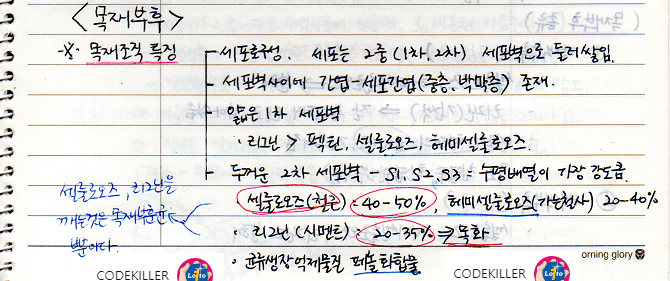 <목재부후>
※. 목재조직 특징
세포로구성. 세포는 2층(1차, 2차) 세포벽으로 둘러쌓임.
세포벽사이에 간엽-세포간엽(중층, 박막층) 존재.
얇은 1차 세포벽
· 리그닌 > 펙틴, 셀룰로오즈, 헤미셀룰로오즈.
두꺼운 2차 세포벽 - S1, S2, S3 = 수평배열이 가장 강도큼.
셀룰로오즈(철근) = 40-50%, 헤미셀룰로오즈(가는철사) 20-40%
· 리그닌(시멘트) = 20-35% ⇒ 목화
· 균류생장억제물질 페놀화합물
셀룰로오즈, 리그닌을
깨는것은 목재부후균
뿐이다.
CODEKILLER Lotto CODEKILLER Lotto
orning glory